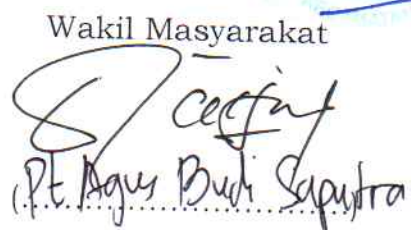 Wakil Masyarakat
(Pt Agus Budi Saputra